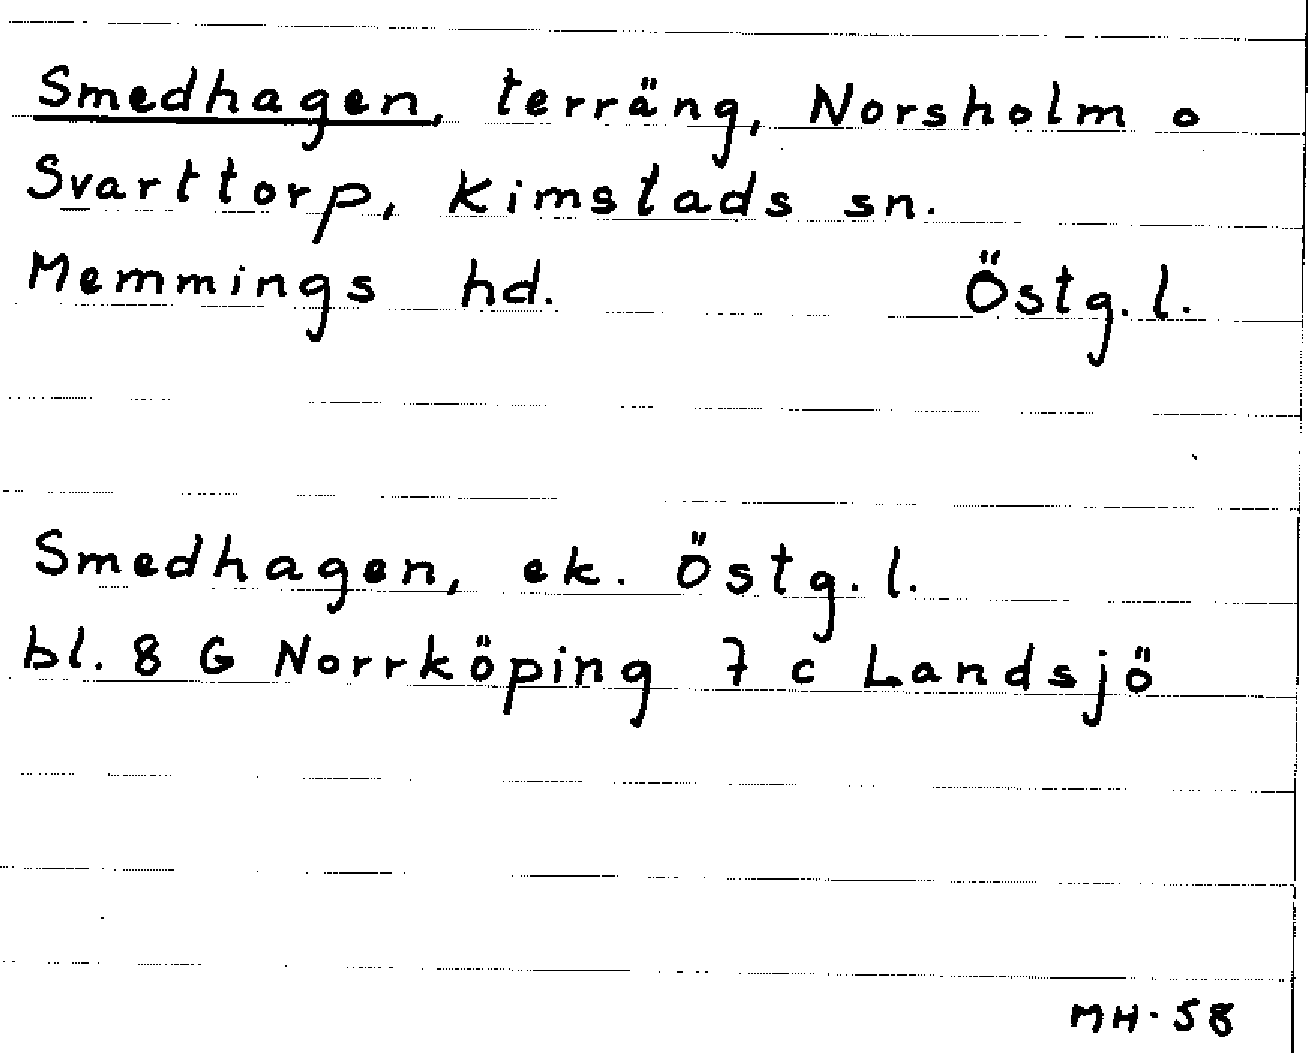 Smedhagen, terräng, Norsholm o
Svarttorp, Kimstads sn.
Memmings hd. Östg. l.
Smedhagen, ek. Östg. l.
bl. 8 G Norrköping 7 c Landsjö
MH-58